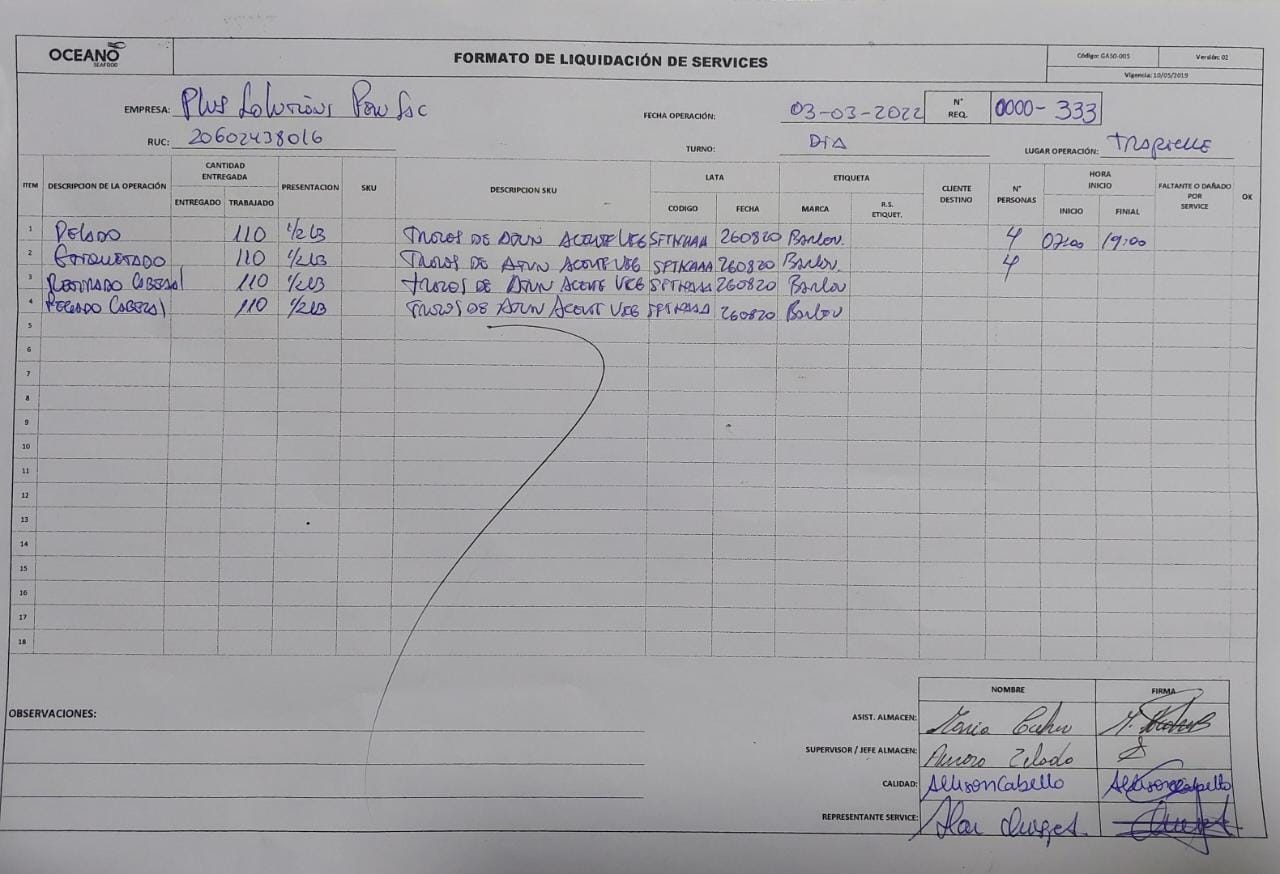 OCEANO
SEAFOOD
FORMATO DE LIQUIDACIÓN DE SERVICES
Código: GASO-005 Versión: 02
Vigencia: 10/05/2019
EMPRESA: Plus Solutions Peru Sac
FECHA OPERACIÓN: 03-03-2022 N° REQ. 0000-333
RUC: 20602438016
TURNO: DIA
LUGAR OPERACIÓN:
ITEM DESCRIPCION DE LA OPERACIÓN CANTIDAD ENTREGADA PRESENTACION SKU DESCRIPCION SKU LATA ETIQUETA CLIENTE DESTINO N° PERSONAS HORA INICIO FALTANTE O DAÑADO POR SERVICE OK
ENTREGADO TRABAJADO CODIGO FECHA MARCA R.S. ETIQUET. INICIO FINIAL
1 PEGADO 110 1/2 LB TROZOS DE ATUN ACEITE VEG 260820 4 07:00 19:00
2 ETIQUETADO 110 1/2 LB TROZOS DE ATUN ACEITE VEG 260820 4
3 110 1/2 LB TROZOS DE ATUN ACEITE VEG 260820
4 110 1/2 LB TROZOS DE ATUN ACEIT VEG 260820
5
6
7
8
9
10
11
12
13
14
15
16
17
18
NOMBRE FIRMA
OBSERVACIONES:
ASIST. ALMACEN: Maria
SUPERVISOR / JEFE ALMACEN:
CALIDAD: Allison Cabello
REPRESENTANTE SERVICE: